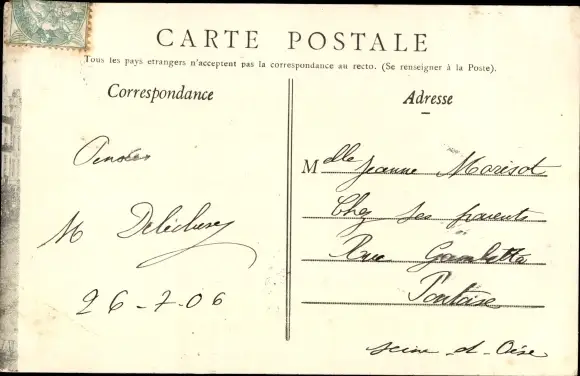 CARTE POSTALE
Tous les pays etrangers n'acceptent pas la correspondance au recto. (Se renseigner à la Poste).
Correspondance
Pensées
M
26-7-06
Adresse
Mdlle Jeanne Morisot
Chez ses parents
Rue Gambetta
Pontoise
Seine-et-Oise